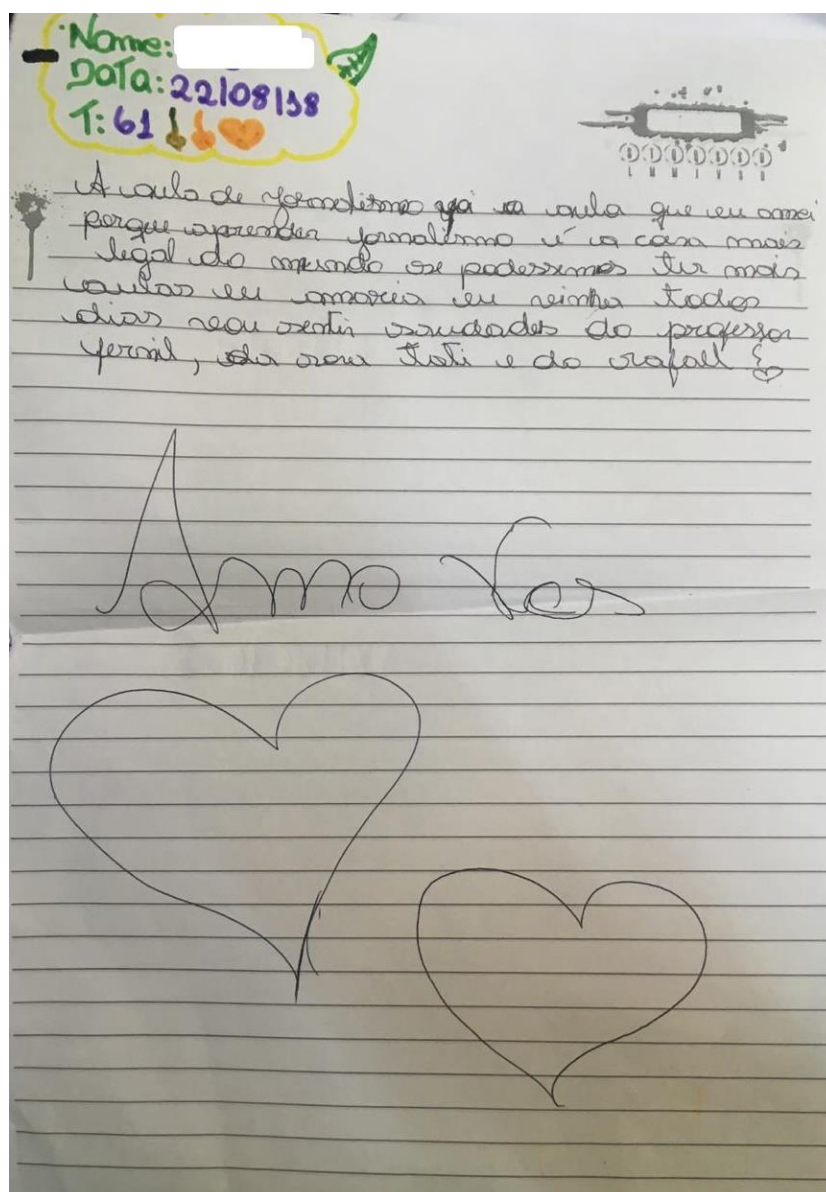 Nome:
Data: 22/08/18
T: 61
D S T Q Q S S
A aula de jornalismo foi a aula que eu amei
porque aprender jornalismo é a coisa mais
legal do mundo se podessemos ter mais
aulas eu amaria eu vinha todos
dias vou sentir saudades do professor
, da sora Tati e do rafael
Amo Vos